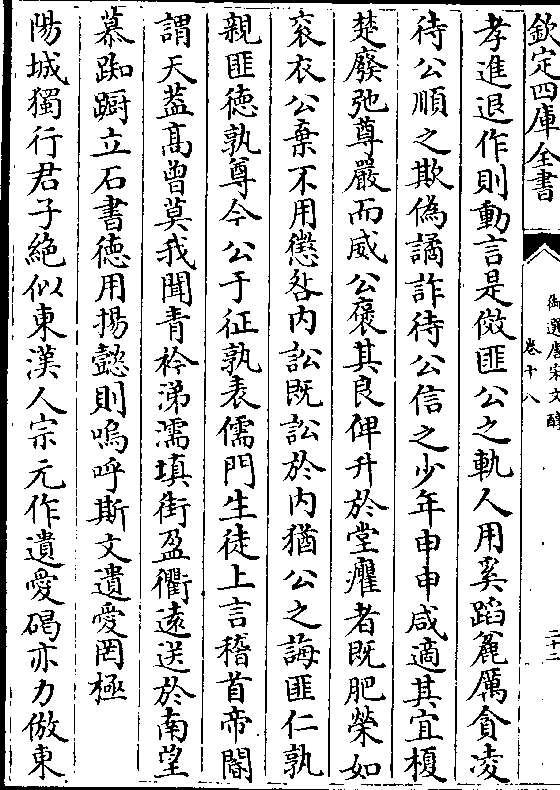 欽定四庫全書
御選唐宋文醇
卷十八
二十二
孝進退作則動言是傚匪公之軌人用奚蹈麄厲貪凌
待公順之欺偽譎詐待公信之少年申申咸適其宜榎
楚廢弛尊嚴而威公褒其良俾升於堂癯者既肥榮如
衮衣公棄不用懲咎内訟既訟於内猶公之誨匪仁孰
親匪徳孰尊今公于征孰表儒門生徒上言稽首帝閽
謂天葢髙曽莫我聞青衿涕濡填街盈衢逺送於南望
慕踟蹰立石書徳用揚懿則嗚呼斯文遺愛罔極
陽城獨行君子絶似東漢人宗元作遺愛碣亦力倣東